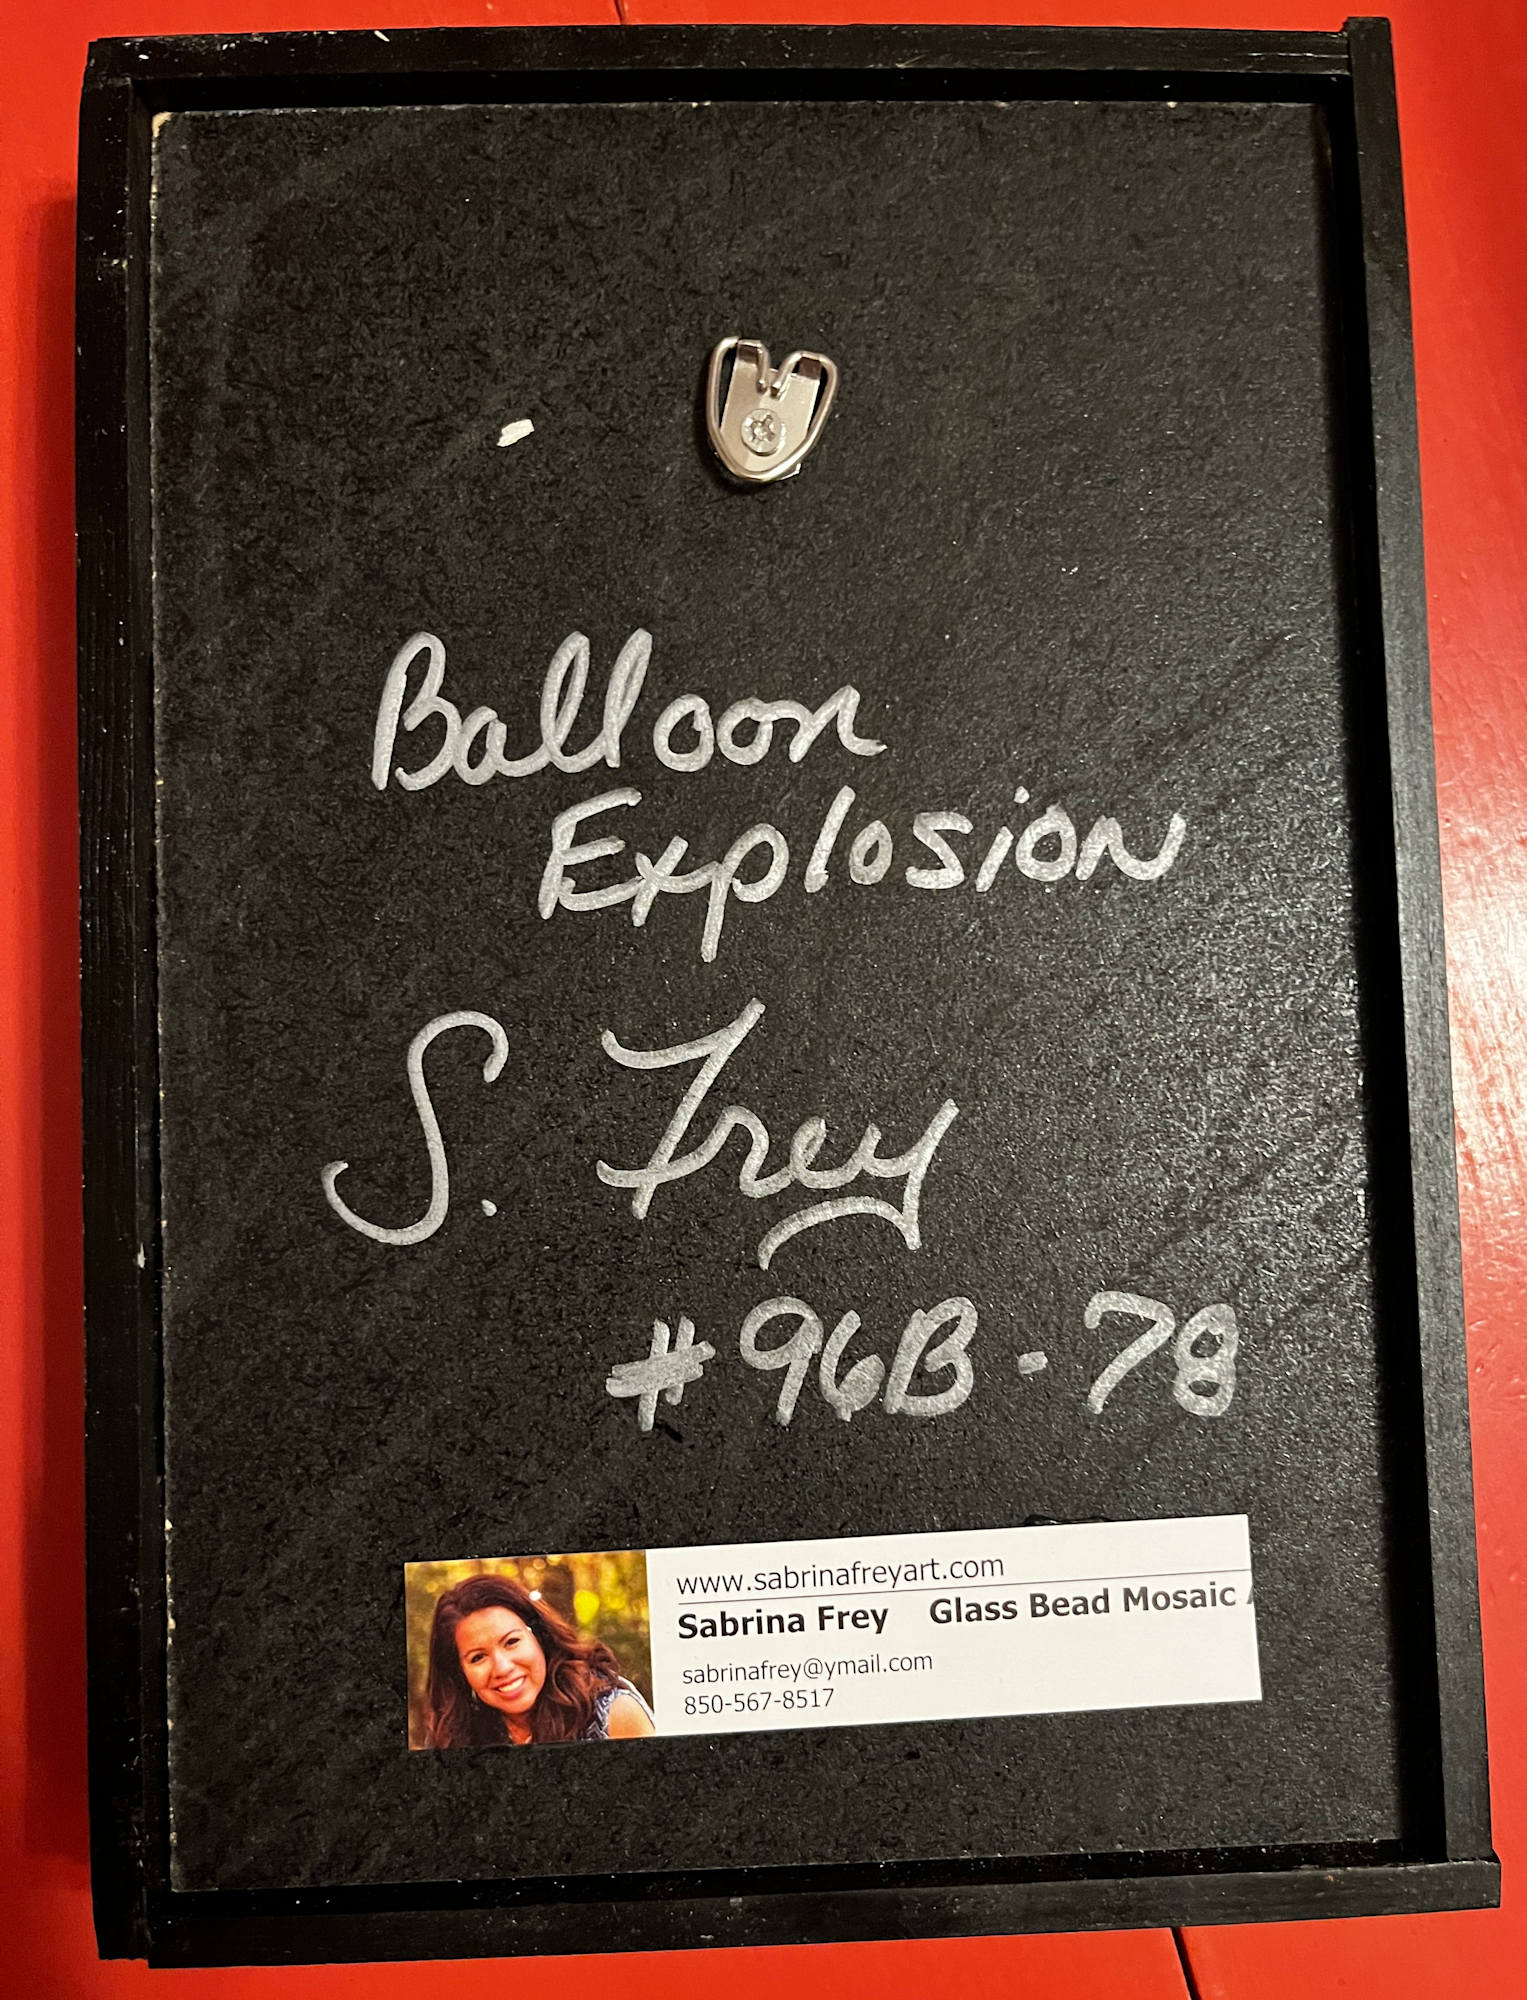 Balloon
Explosion
S. Frey
#96B-78
www.sabrinafreyart.com
Sabrina Frey Glass Bead Mosaic
sabrinafrey@ymail.com
850-567-8517